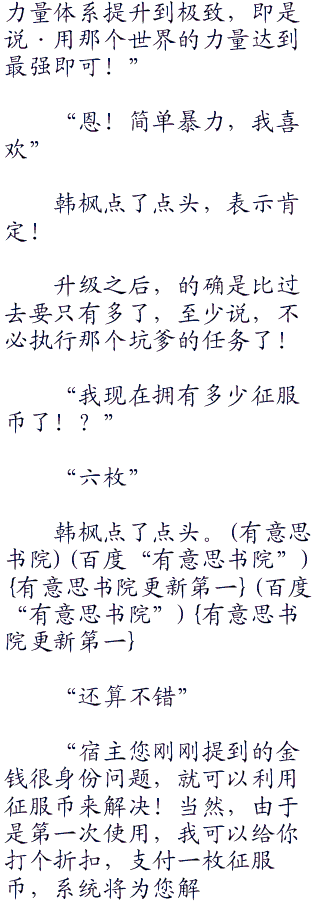 力量体系提升到极致，即是
说·用那个世界的力量达到
最强即可！”
“恩！简单暴力，我喜
欢”
韩枫点了点头，表示肯
定！
升级之后，的确是比过
去要只有多了，至少说，不
必执行那个坑爹的任务了！
“我现在拥有多少征服
币了！？”
“六枚”
韩枫点了点头。(有意思
书院)(百度“有意思书院”)
{有意思书院更新第一}(百度
“有意思书院”){有意思书
院更新第一}
“还算不错”
“宿主您刚刚提到的金
钱很身份问题，就可以利用
征服币来解决！当然，由于
是第一次使用，我可以给你
打个折扣，支付一枚征服
币，系统将为您解